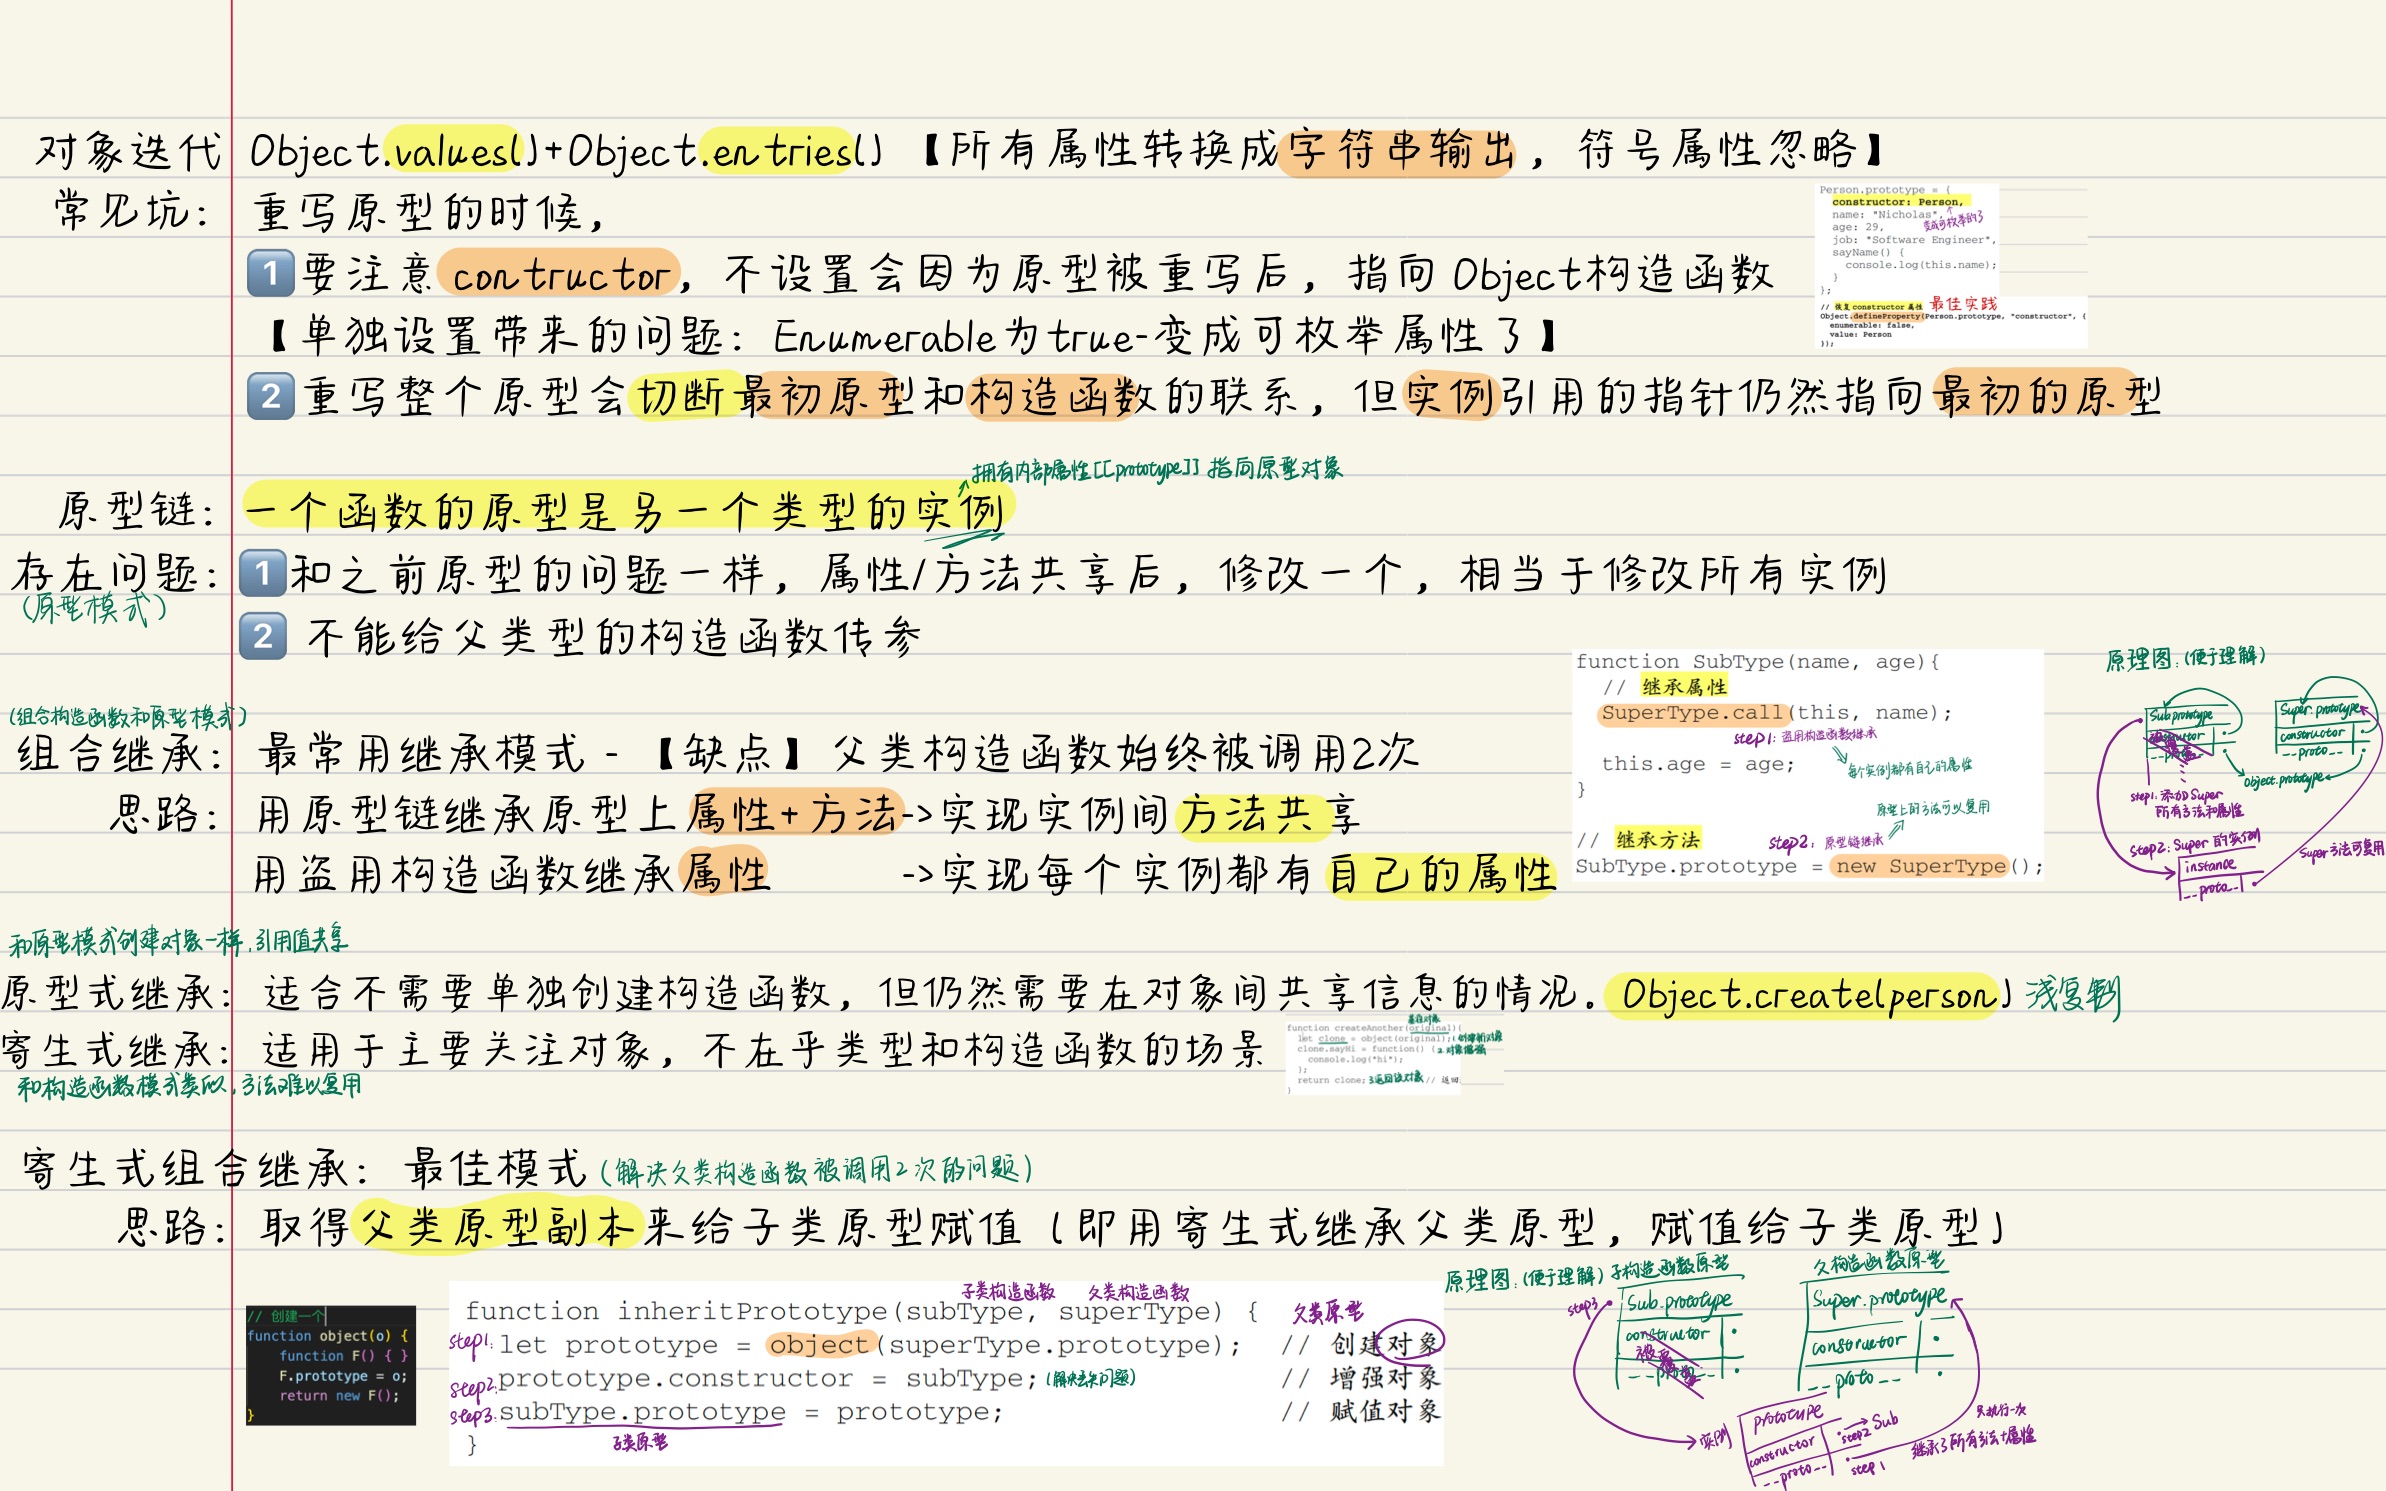 对象迭代 Object.values()+Object.entries() 【所有属性转换成字符串输出，符号属性忽略】
常见坑： 重写原型的时候，
1 要注意 contructor，不设置会因为原型被重写后，指向 Object构造函数
【单独设置带来的问题：Enumerable为true-变成可枚举属性了】
2 重写整个原型会切断最初原型和构造函数的联系，但实例引用的指针仍然指向最初的原型
Person.prototype = {
constructor: Person,
name: "Nicholas",
变成可枚举的了
age: 29,
job: "Software Engineer",
sayName() {
console.log(this.name);
}
};
// 恢复 constructor 属性 最佳实践
Object.defineProperty(Person.prototype, "constructor", {
enumerable: false,
value: Person
});
拥有内部属性[[prototype]] 指向原型对象
原型链： 一个函数的原型是另一个类型的实例
存在问题： 1 和之前原型的问题一样，属性/方法共享后，修改一个，相当于修改所有实例
(原型模式)
2 不能给父类型的构造函数传参
(组合构造函数和原型模式)
组合继承： 最常用继承模式 - 【缺点】父类构造函数始终被调用2次
思路： 用原型链继承原型上属性+方法->实现实例间方法共享
用盗用构造函数继承属性 ->实现每个实例都有自己的属性
function SubType(name, age){
// 继承属性
SuperType.call(this, name);
step1: 盗用构造函数继承
this.age = age;
每个实例都有自己的属性
}
原型上的方法可以复用
// 继承方法 step2: 原型链继承
SubType.prototype = new SuperType();
原理图:(便于理解)
Sub prototype
Super. prototype
constructor
--proto--
object.prototype
step1: 添加Super
所有方法和属性
step2: Super 的实例
instance
--proto--
Super方法可复用
和原型模式创建对象一样,引用值共享
原型式继承： 适合不需要单独创建构造函数，但仍然需要在对象间共享信息的情况. Object.create(person) 浅复制
寄生式继承： 适用于主要关注对象，不在乎类型和构造函数的场景
和构造函数模式类似,方法难以复用
function createAnother(original){
let clone = object(original); 1.创建新对象
clone.sayHi = function() { 2.对象增强
console.log("hi");
};
return clone; 3.返回该对象 // 返回
}
寄生式组合继承： 最佳模式 (解决父类构造函数被调用2次的问题)
思路： 取得父类原型副本来给子类原型赋值（即用寄生式继承父类原型，赋值给子类原型）
// 创建一个
function object(o) {
function F() { }
F.prototype = o;
return new F();
}
子类构造函数 父类构造函数
function inheritPrototype(subType, superType) {
父类原型
step1: let prototype = object(superType.prototype); // 创建对象
step2: prototype.constructor = subType; (解决丢失问题) // 增强对象
step3: subType.prototype = prototype; // 赋值对象
}
子类原型
原理图:(便于理解) 子构造函数原型
父构造函数原型
step3
Sub.prototype
constructor
--proto--
Super.prototype
constructor
--proto--
实例
prototype
constructor
--proto--
Sub
step2
step1
只执行一次
继承了所有方法+属性